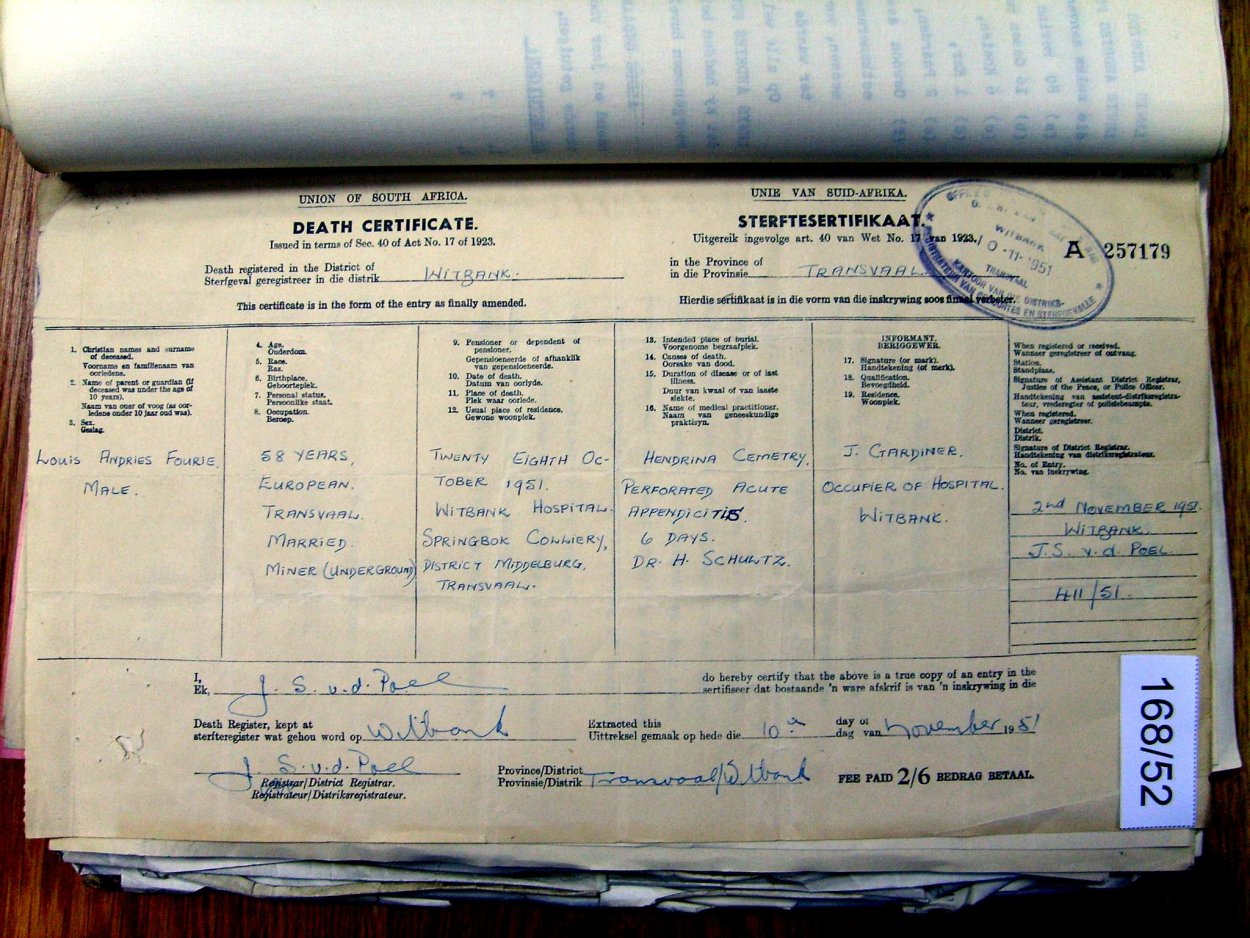 UNION OF SOUTH AFRICA.
DEATH CERTIFICATE.
Issued in terms of Sec. 40 of Act No. 17 of 1923.
UNIE VAN SUID-AFRIKA.
STERFTESERTIFIKAAT.
Uitgereik ingevolge art. 40 van Wet No. 17 van 1923.
A 257179
WITBANK
10-11-1951
TRANSVAAL
KANTOOR VAN DIE DISTRIKS-
REGISTRATEUR VAN GEBOORTES EN STERFGEVALLE
Death registered in the District of
Sterfgeval geregistreer in die distrik WITBANK.
in the Province of
in die Provinsie TRANSVAAL
This certificate is in the form of the entry as finally amended.
Hierdie sertifikaat is in die vorm van die inskrywing soos finaal verbeter.
1. Christian names and surname
of deceased.
Voorname en familienaam van
oorledene.
2. Name of parent or guardian (if
deceased was under the age of
10 years).
Naam van ouer of voog (as oor-
ledene onder 10 jaar oud was).
3. Sex.
Geslag.
LOUIS ANDRIES FOURIE.
MALE.
4. Age.
Ouderdom.
5. Race.
Ras.
6. Birthplace.
Geboorteplek.
7. Personal status.
Persoonlike staat.
8. Occupation.
Beroep.
58 YEARS,
EUROPEAN.
TRANSVAAL.
MARRIED.
MINER (UNDERGROUND)
9. Pensioner or dependent of
pensioner.
Gepensioeneerde of afhanklik
van gepensioeneerde.
10. Date of death.
Datum van oorlyde.
11. Place of death.
Plek waar oorlede.
12. Usual place of residence.
Gewone woonplek.
TWENTY EIGHTH OC-
TOBER 1951.
WITBANK HOSPITAL.
SPRINGBOK COLLIERY,
DISTRICT MIDDELBURG,
TRANSVAAL.
13. Intended place of burial.
Voorgenome begraafplek.
14. Causes of death.
Oorsake van dood.
15. Duration of disease or of last
illness.
Duur van kwaal of van laaste
siekte.
16. Name of medical practitioner.
Naam van geneeskundige
praktisyn.
HENDRINA CEMETRY.
PERFORATED ACUTE
APPENDICITIS.
6 DAYS.
DR. H. SCHULTZ.
INFORMANT.
BERIGGEWER.
17. Signature (or mark).
Handtekening (of merk).
18. Qualification.
Bevoegdheid.
19. Residence.
Woonplek.
J. GARDINER.
OCCUPIER OF HOSPITAL.
WITBANK.
When registered or received.
Wanneer geregistreer of ontvang.
Station.
Standplaas.
Signature of Assistant District Registrar,
Justice of the Peace, or Police Officer.
Handtekening van assistent-distriksregistra-
teur, vrederegter of polisiebeampte.
When registered.
Wanneer geregistreer.
District.
Distrik.
Signature of District Registrar.
Handtekening van distriksregistrateur.
No. of Entry.
No. van inskrywing.
2nd NOVEMBER 1951.
WITBANK.
J.S. v.d. POEL
411/51.
I,
Ek, J. S. v.d. Poel
do hereby certify that the above is a true copy of an entry in the
sertifiseer dat bostaande 'n ware afskrif is van 'n inskrywing in die
Death Register, kept at
sterfteregister wat gehou word op Witbank
Extracted this
Uittreksel gemaak op hede die 10
day of
dag van November 1951
J. S. v.d. Poel
Registrar/District Registrar.
Registrateur/Distriksregistrateur.
Province/District
Provinsie/Distrik Transvaal/Witbank
FEE PAID 2/6 BEDRAG BETAAL.
168/52